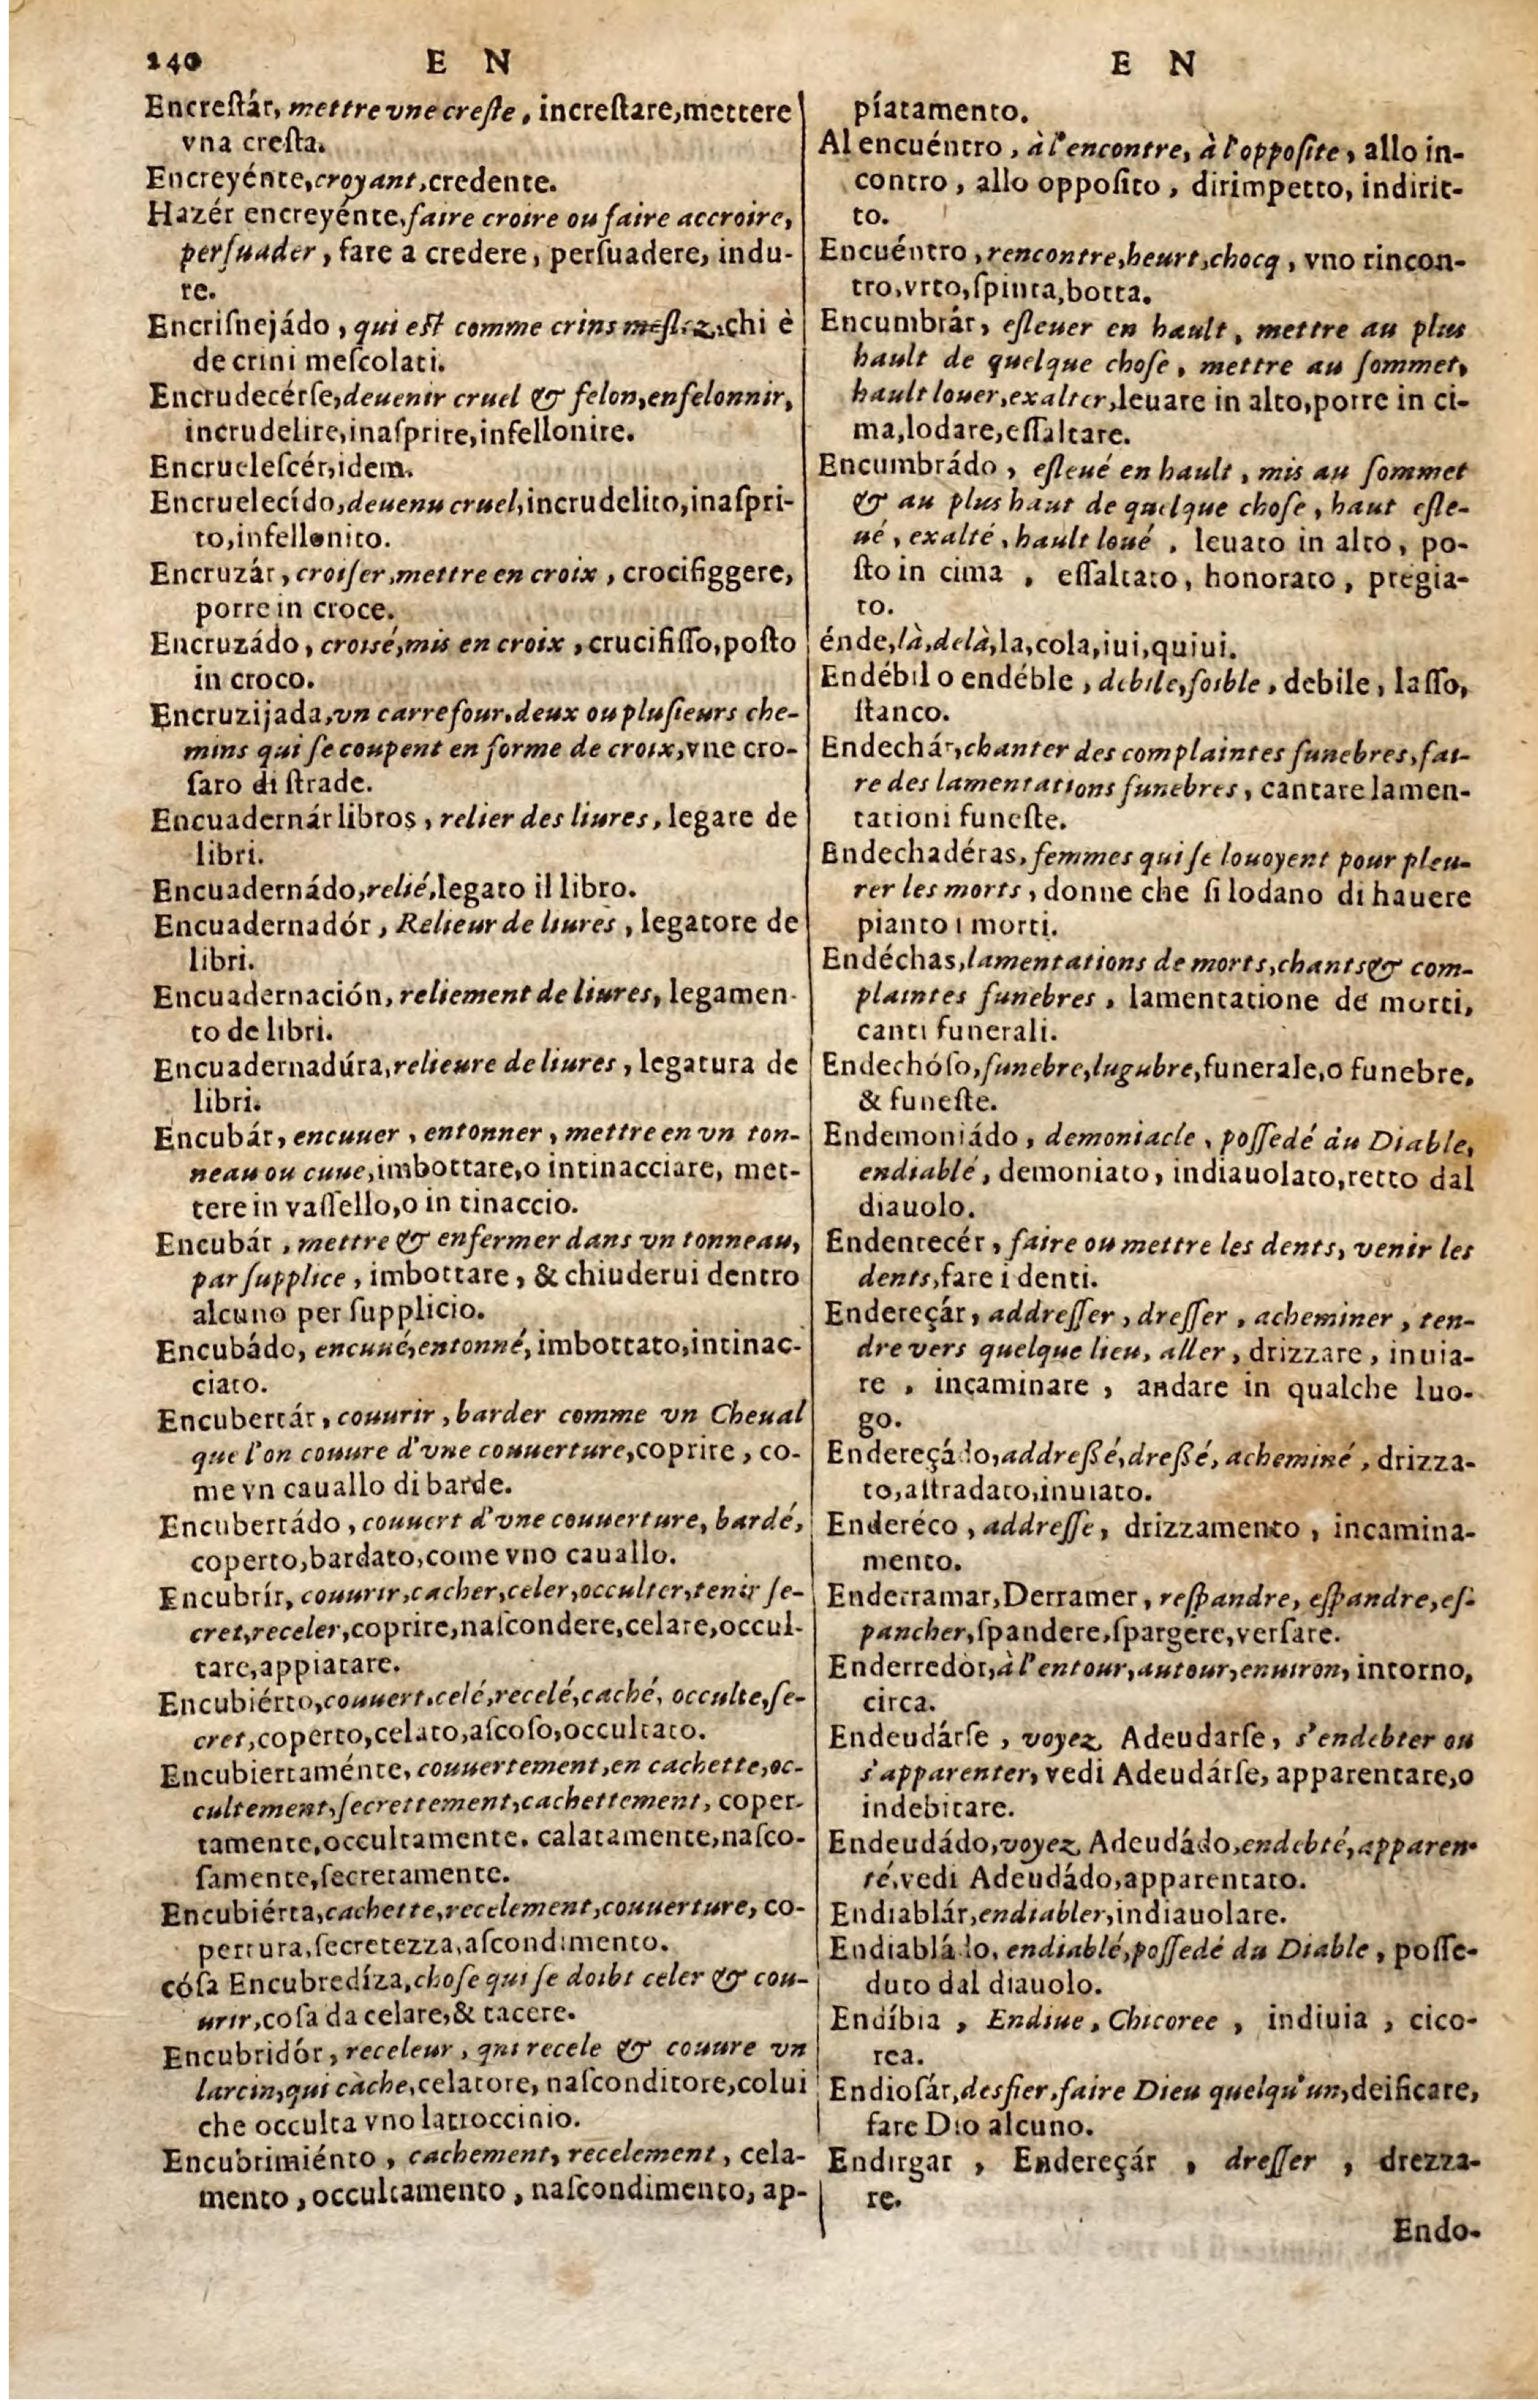 240 E N
E N
Encreſtár, mettre vne creſte, increſtare, mettere
vna creſta.
Encreyénte, croyant, credente.
Hazér encreyénte, faire croire ou faire accroire,
perſuader, fare a credere, perſuadere, indu-
re.
Encriſnejádo, qui eſt comme crins meſlez, chi è
de crini meſcolati.
Encrudecérſe, deuenir cruel & felon, enfelonnir,
incrudelire, inaſprire, infellonire.
Encrueleſcér, idem.
Encruelecído, deuenu cruel, incrudelito, inaſpri-
to, infellonito.
Encruzár, croiſer, mettre en croix, crocifiggere,
porre in croce.
Encruzádo, croisé, mis en croix, crucifiſſo, poſto
in croco.
Encruzijada, vn carrefour, deux ou pluſieurs che-
mins qui ſe coupent en forme de croix, vne cro-
ſaro di ſtrade.
Encuadernár libros, relier des liures, legare de
libri.
Encuadernádo, relié, legato il libro.
Encuadernadór, Relieur de liures, legatore de
libri.
Encuadernación, reliement de liures, legamen-
to de libri.
Encuadernadúra, relieure de liures, legatura de
libri.
Encubár, encuuer, entonner, mettre en vn ton-
neau ou cuue, imbottare, o intinacciare, met-
tere in vaſſello, o in tinaccio.
Encubár, mettre & enfermer dans vn tonneau,
par ſupplice, imbottare, & chiuderui dentro
alcuno per ſupplicio.
Encubádo, encuué, entonné, imbottato, intinac-
ciato.
Encubertár, couurir, barder comme vn Cheual
que l'on couure d'vne couuerture, coprire, co-
me vn cauallo di barde.
Encubertádo, couuert d'vne couuerture, bardé,
coperto, bardato, come vno cauallo.
Encubrír, couurir, cacher, celer, occulter, tenir ſe-
cret, receler, coprire, naſcondere, celare, occul-
tare, appiatare.
Encubiérto, couuert, celé, recelé, caché, occulte, ſe-
cret, coperto, celato, aſcoſo, occultato.
Encubiertaménte, couuertement, en cachette, oc-
cultement, ſecrettement, cachettement, coper-
tamente, occultamente. calatamente, naſco-
ſamente, ſecretamente.
Encubiérta, cachette, recelement, couuerture, co-
pertura, ſecretezza, aſcondimento.
cóſa Encubredíza, choſe qui ſe doibt celer & cou-
urir, coſa da celare, & tacere.
Encubridór, receleur, qui recele & couure vn
larcin, qui càche, celatore, naſconditore, colui
che occulta vno latroccinio.
Encubrimiénto, cachement, recelement, cela-
mento, occultamento, naſcondimento, ap-
píatamento.
Al encuéntro, à l'encontre, à l'oppoſite, allo in-
contro, allo oppoſito, dirimpetto, indirit-
to.
Encuéntro, rencontre, heurt, chocq, vno rincon-
tro, vrto, ſpinta, botta.
Encumbrár, eſleuer en hault, mettre au plus
hault de quelque choſe, mettre au ſommet,
hault louer, exalter, leuare in alto, porre in ci-
ma, lodare, eſſaltare.
Encumbrádo, eſleué en hault, mis au ſommet
& au plus haut de quelque choſe, haut eſle-
ué, exalté, hault loué, leuato in alto, po-
ſto in cima, eſſaltato, honorato, pregia-
to.
énde, là, delà, la, cola, iui, quiui.
Endébil o endéble, debile, foible, debile, laſſo,
ſtanco.
Endechár, chanter des complaintes funebres, fai-
re des lamentations funebres, cantare lamen-
tationi funeſte.
Endechadéras, femmes qui ſe louoyent pour pleu-
rer les morts, donne che ſi lodano di hauere
pianto i morti.
Endéchas, lamentations de morts, chants & com-
plaintes funebres, lamentatione de morti,
canti funerali.
Endechóſo, funebre, lugubre, funerale, o funebre,
& funeſte.
Endemoniádo, demoniacle, poſſedé du Diable,
endiablé, demoniato, indiauolato, retto dal
diauolo.
Endentecér, faire ou mettre les dents, venir les
dents, fare i denti.
Endereçár, addreſſer, dreſſer, acheminer, ten-
dre vers quelque lieu, aller, drizzare, inuia-
re, incaminare, andare in qualche luo-
go.
Endereçádo, addreßé, dreßé, acheminé, drizza-
to, aſtradato, inuiato.
Enderéco, addreſſe, drizzamento, incamina-
mento.
Enderramar, Derramer, reſpandre, eſpandre, eſ-
pancher, ſpandere, ſpargere, verſare.
Enderredòr, à l'entour, autour, enuiron, intorno,
circa.
Endeudárſe, voyez Adeudarſe, s'endebter ou
s'apparenter, vedi Adeudárſe, apparentare, o
indebitare.
Endeudádo, voyez Adeudádo, endebté, apparen-
té, vedi Adeudádo, apparentato.
Endiablár, endiabler, indiauolare.
Endiabládo, endiablé, poſſedé du Diable, poſſe-
duto dal diauolo.
Endíbia, Endiue, Chicoree, indiuia, cico-
rea.
Endioſár, desfier, faire Dieu quelqu'un, deificare,
fare Dio alcuno.
Endirgar, Endereçár, dreſſer, drezza-
re.
Endo-